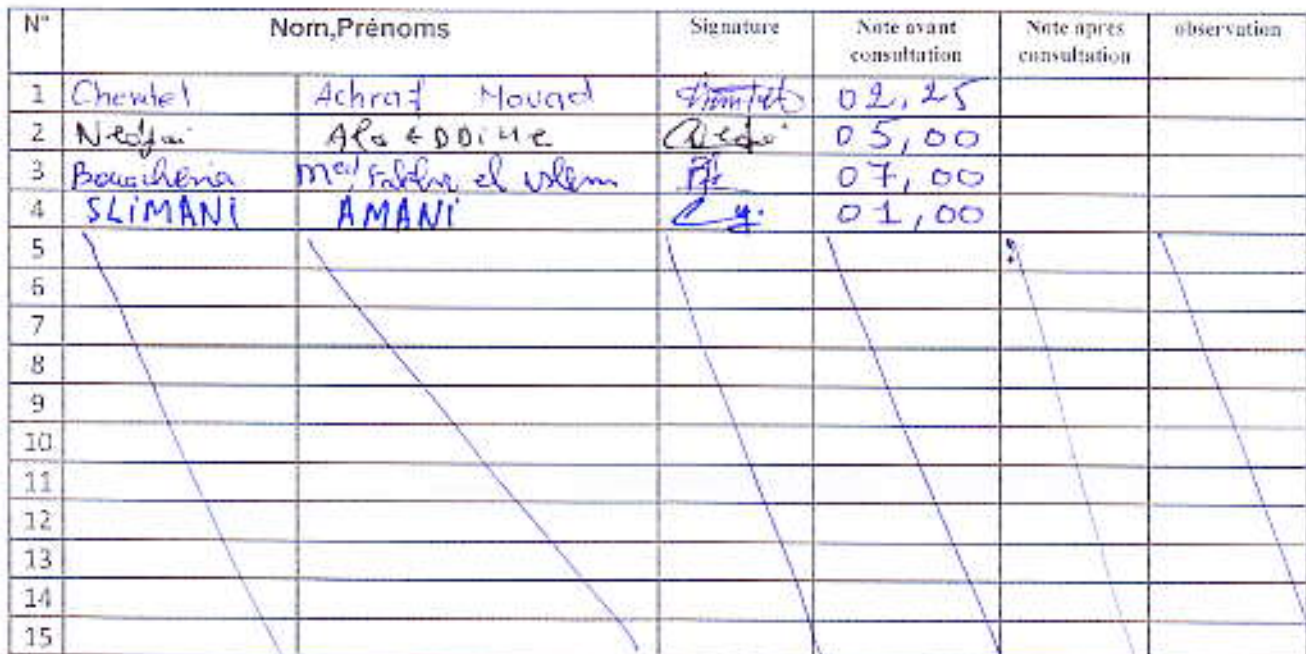 N° Nom,Prénoms Signature Note avant consultation Note apres consultation observation
1 Chentel Achraf Mouad 02,25
2 Nedjai Ala EDDiNe 05,00
3 Med el 07,00
4 SLiMANi AMANi 01,00
5
6
7
8
9
10
11
12
13
14
15